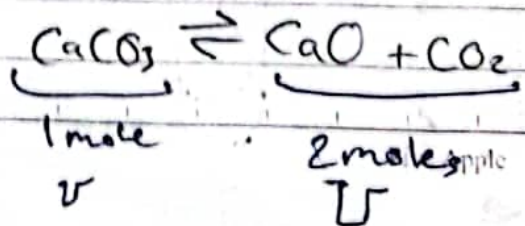 CaCO₃ ⇌ CaO + CO₂
1 mole 2 moles